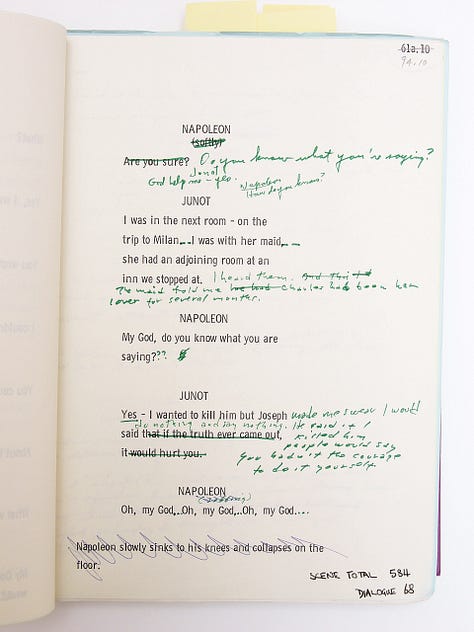 61a.10
9A.10
NAPOLEON
(softly)
Are you sure? Do you know what you're saying?
Junot
God help me - yes.
Napoleon
How do you know?
JUNOT
I was in the next room - on the
trip to Milan...I was with her maid...
she had an adjoining room at an
inn we stopped at. I heard them. And this
The maid told me he had Charles had been her
lover for several months.
NAPOLEON
My God, do you know what you are
saying???
JUNOT
Yes - I wanted to kill him but Joseph made me swear I would
do nothing and say nothing. He said if I
said that if the truth ever came out, killed him
people would say
it would hurt you. you hadn't the courage
to do it yourself.
NAPOLEON
Oh, my God...Oh, my God...Oh, my God....
Napoleon slowly sinks to his knees and collapses on the
floor.
SCENE TOTAL 584
DIALOGUE 68